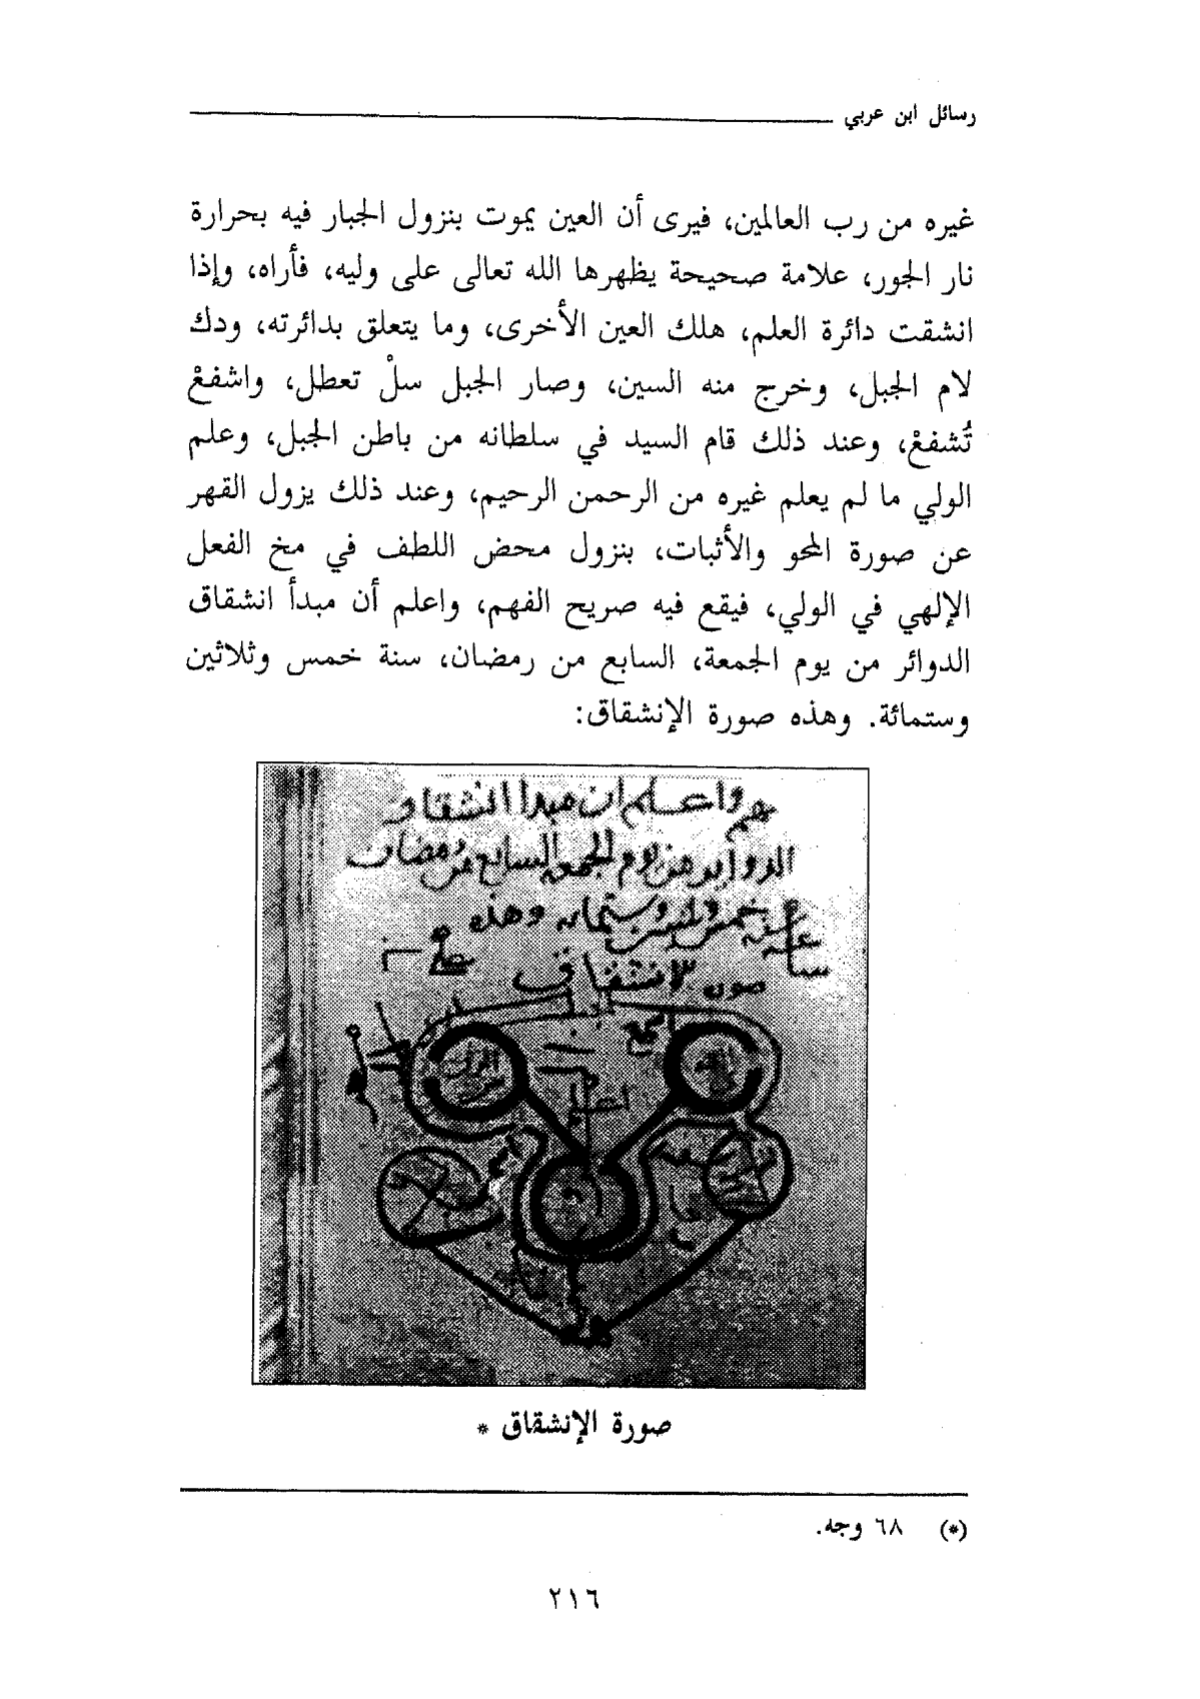 رسائل ابن عربي
غيره من رب العالمين، فيرى أن العين يموت بنزول الجبار فيه بحرارة
نار الجور، علامة صحيحة يظهرها الله تعالى على وليه، فأراه، وإذا
انشقت دائرة العلم، هلك العين الأخرى، وما يتعلق بدائرته، ودك
لام الجبل، وخرج منه السين، وصار الجبل سلْ تعطل، واشفعْ
تُشفعْ، وعند ذلك قام السيد في سلطانه من باطن الجبل، وعلم
الولي ما لم يعلم غيره من الرحمن الرحيم، وعند ذلك يزول القهر
عن صورة المحو والأثبات، بنزول محض اللطف في مخ الفعل
الإلهي في الولي، فيقع فيه صريح الفهم، واعلم أن مبدأ انشقاق
الدوائر من يوم الجمعة، السابع من رمضان، سنة خمس وثلاثين
وستمائة. وهذه صورة الإنشقاق:
هم واعلم ان مبدا انشقاق
الدواير من يوم الجمعة السابع من رمضان
سنه خمس وثلثين وستمايه وهذه
صورة الانشقاق
صورة الإنشقاق *
(*) ٦٨ وجه.
٢١٦